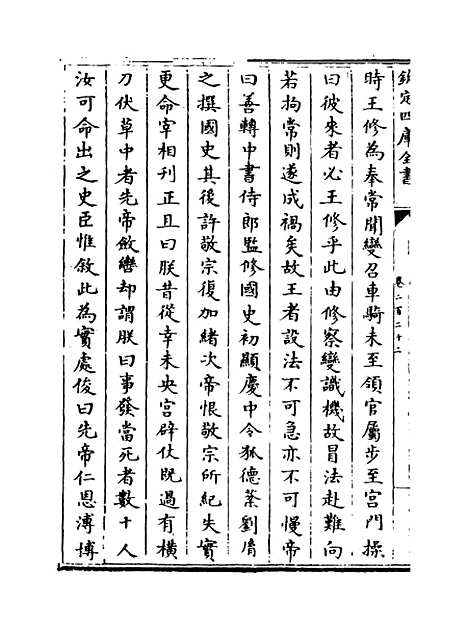 欽定四庫全書
卷二百二十二
時王修為奉常聞變召車騎未至領官屬步至宮門操
曰彼來者必王修乎此由修察變識機故冒法赴難向
若拘常則遂成禍矣故王者設法不可急亦不可慢帝
曰善轉中書侍郎監修國史初顯慶中令狐德棻劉𦙍
之撰國史其後許敬宗復加緒次帝恨敬宗所紀失實
更命宰相刊正且曰朕昔從幸未央宮辟仗既過有横
刀伏草中者先帝斂轡却謂朕曰事發當死者數十人
汝可命出之史臣惟敘此為實處俊曰先帝仁恩溥博